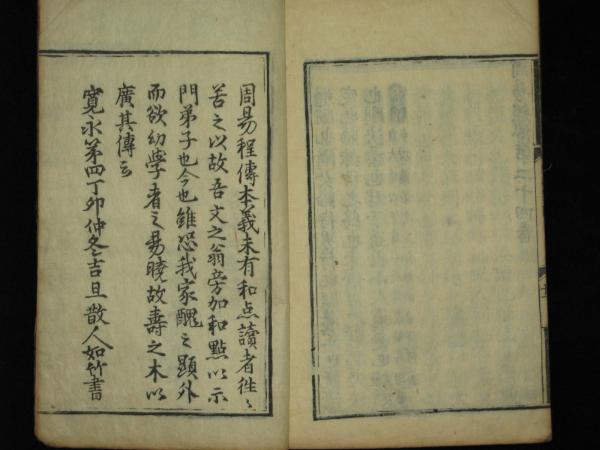 周易程傳本義未有和点讀者徃〻
苦之以故吾文之翁旁加和點以示
門弟子也今也雖恐我家醜之顕外
而欲幼学者之易曉故壽之木以
廣其傳云
寛永第四丁卯仲冬吉旦散人如竹書